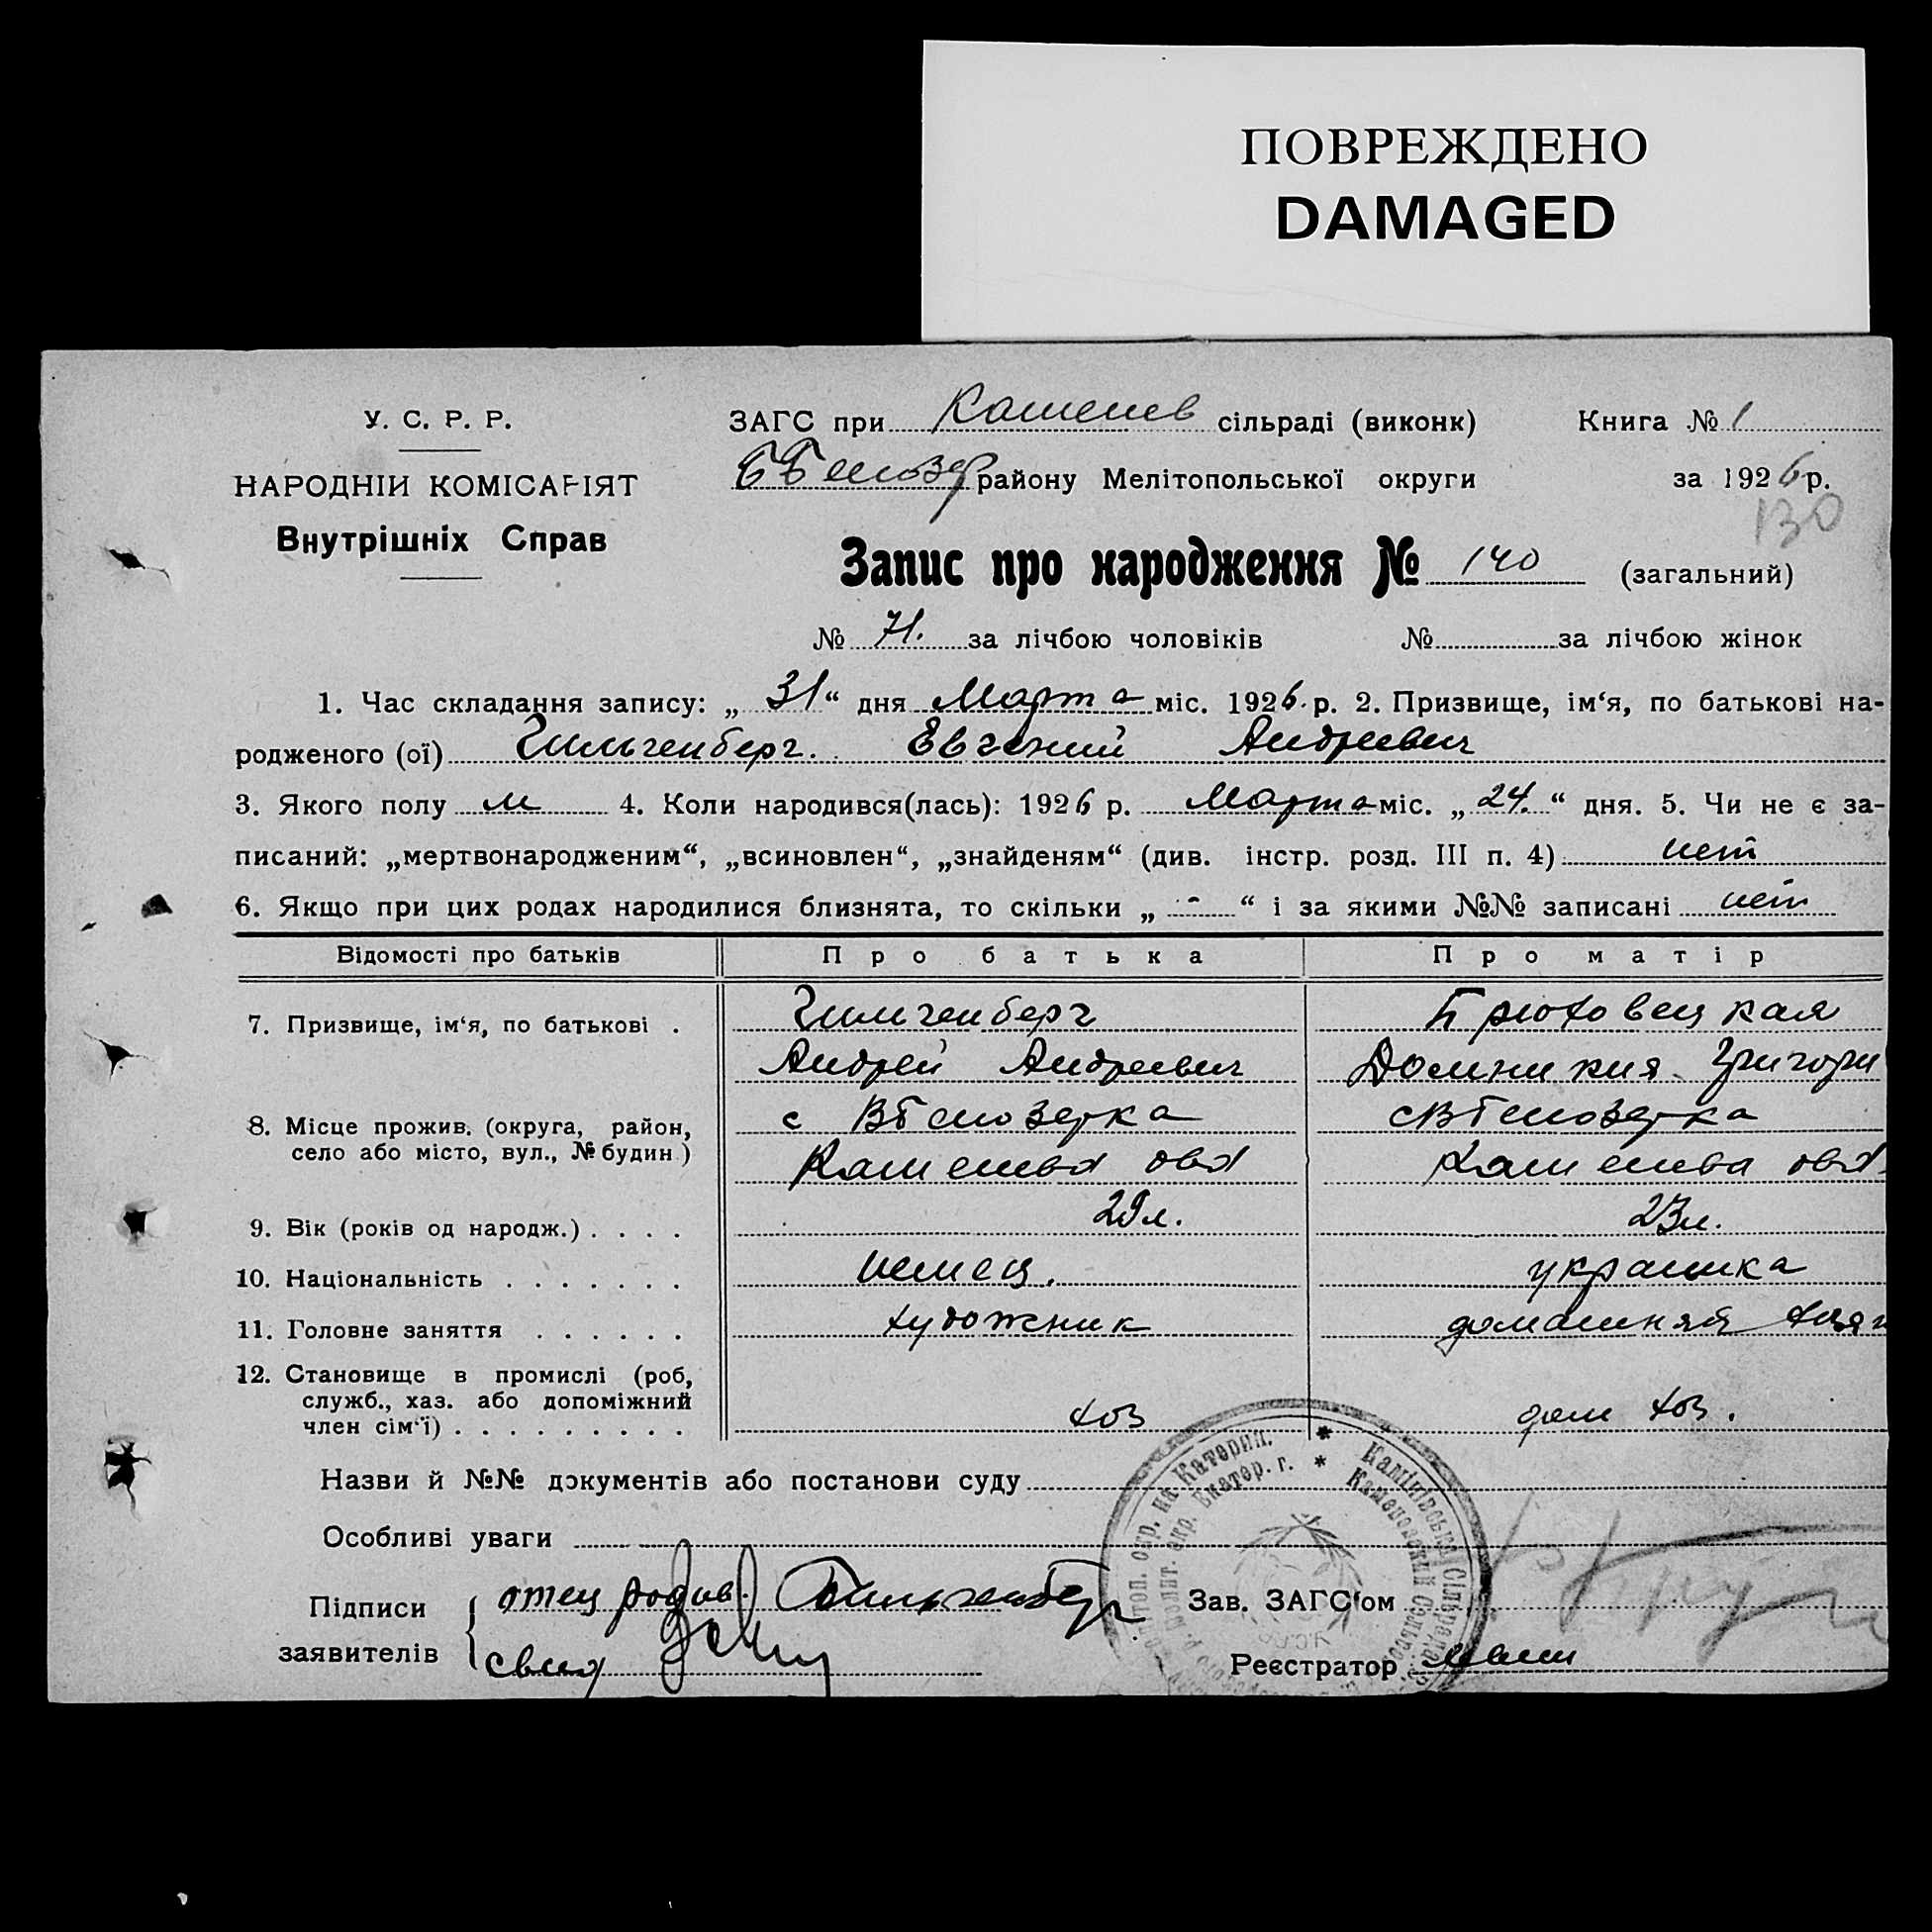 ПОВРЕЖДЕНО
DAMAGED
У. С. Р. Р.
НАРОДНІЙ КОМІСАРІЯТ
Внутрішніх Справ
ЗАГС при Каменев сільраді (виконк) Книга № 1
району Мелітопольської округи за 1926 р.
130
Запис про народження № 140 (загальний)
№ 71. за лічбою чоловіків № за лічбою жінок
1. Час складання запису: „31“ дня Марта міс. 1926. р. 2. Призвище, ім‘я, по батькові на-
родженого (ої) Гильгенберг. Евгений Андреевич
3. Якого полу м 4. Коли народився(лась): 1926 р. Марта міс. „24.“ дня. 5. Чи не є за-
писаний: „мертвонародженим“, „всиновлен“, „знайденям“ (див. інстр. розд. III п. 4) нет
6. Якщо при цих родах народилися близнята, то скільки „-“ і за якими №№ записані нет
Відомості про батьків Про батька Про матір
7. Призвище, ім‘я, по батькові . Гильгенберг Брюховецкая
Андрей Андреевич Домникия Григори
8. Місце прожив. (округа, район, село або місто, вул., № будин.) с Бѣлозерка с Бѣлозерка
9. Вік (років од народж.) . . . . 29 л. 23 л.
10. Національність . . . . . . . немец. украинка
11. Головне заняття . . . . . . художник домашняя
12. Становище в промислі (роб, служб., хаз. або допоміжний член сім‘ї) . . . . . . . . . хоз дом хоз.
Назви й №№ документів або постанови суду
Особливі уваги
Підписи заявителів отец Гильгенберг
Зав. ЗАГС‘ом
Реєстратор